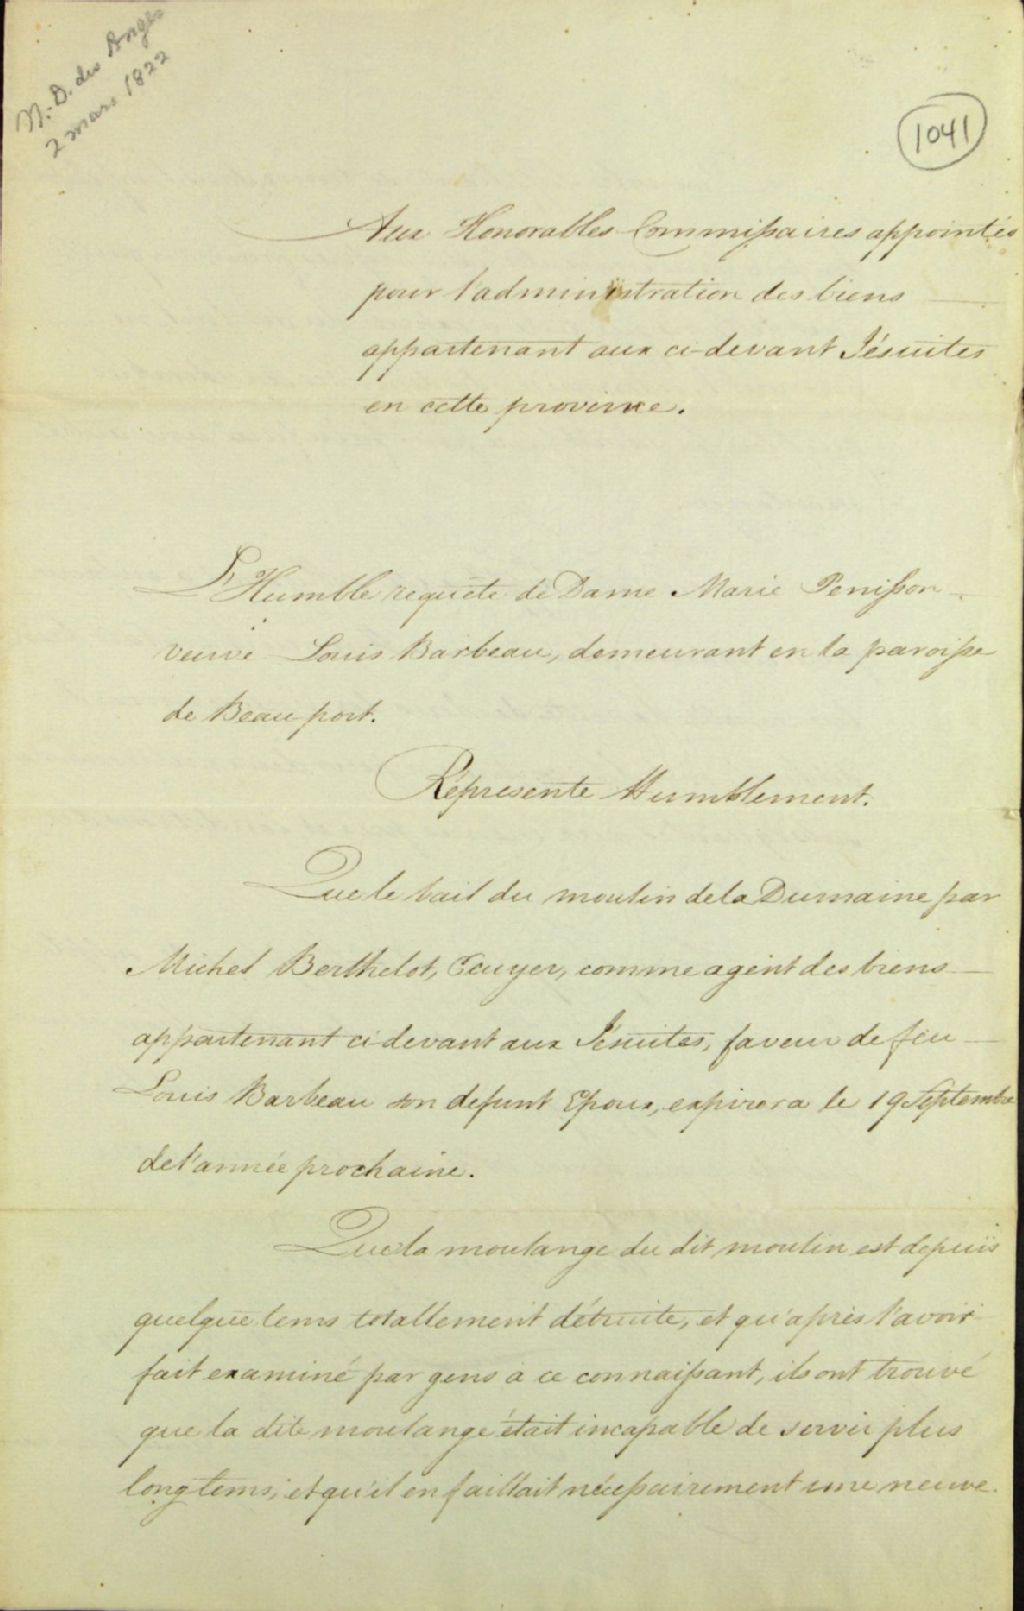 N.-D. des Anges
2 mars 1822
1041
Aux Honorables Commissaires appointés
pour l'administration des biens
appartenant aux ci-devant Jésuites
en cette province.
L'Humble requête de Dame Marie Penisson
veuve Louis Barbeau, demeurant en la paroisse
de Beauport.
Réprésente Humblement.
Que le bail du moulin de la Dumaine par
Michel Berthelot, Ecuyer, comme agent des biens
appartenant ci devant aux Jésuites, faveur de feu
Louis Barbeau son defunt Epoux, expirera le 19 Septembre
de l'année prochaine.
Que la moulange du dit moulin est depuis
quelque tems totallement détruite, et qu'après l'avoir
fait examiné par gens à ce connaissant, ils ont trouvé
que la dite moulange était incapable de servir plus
longtems, et qu'il en faillait nécessairement une neuve.